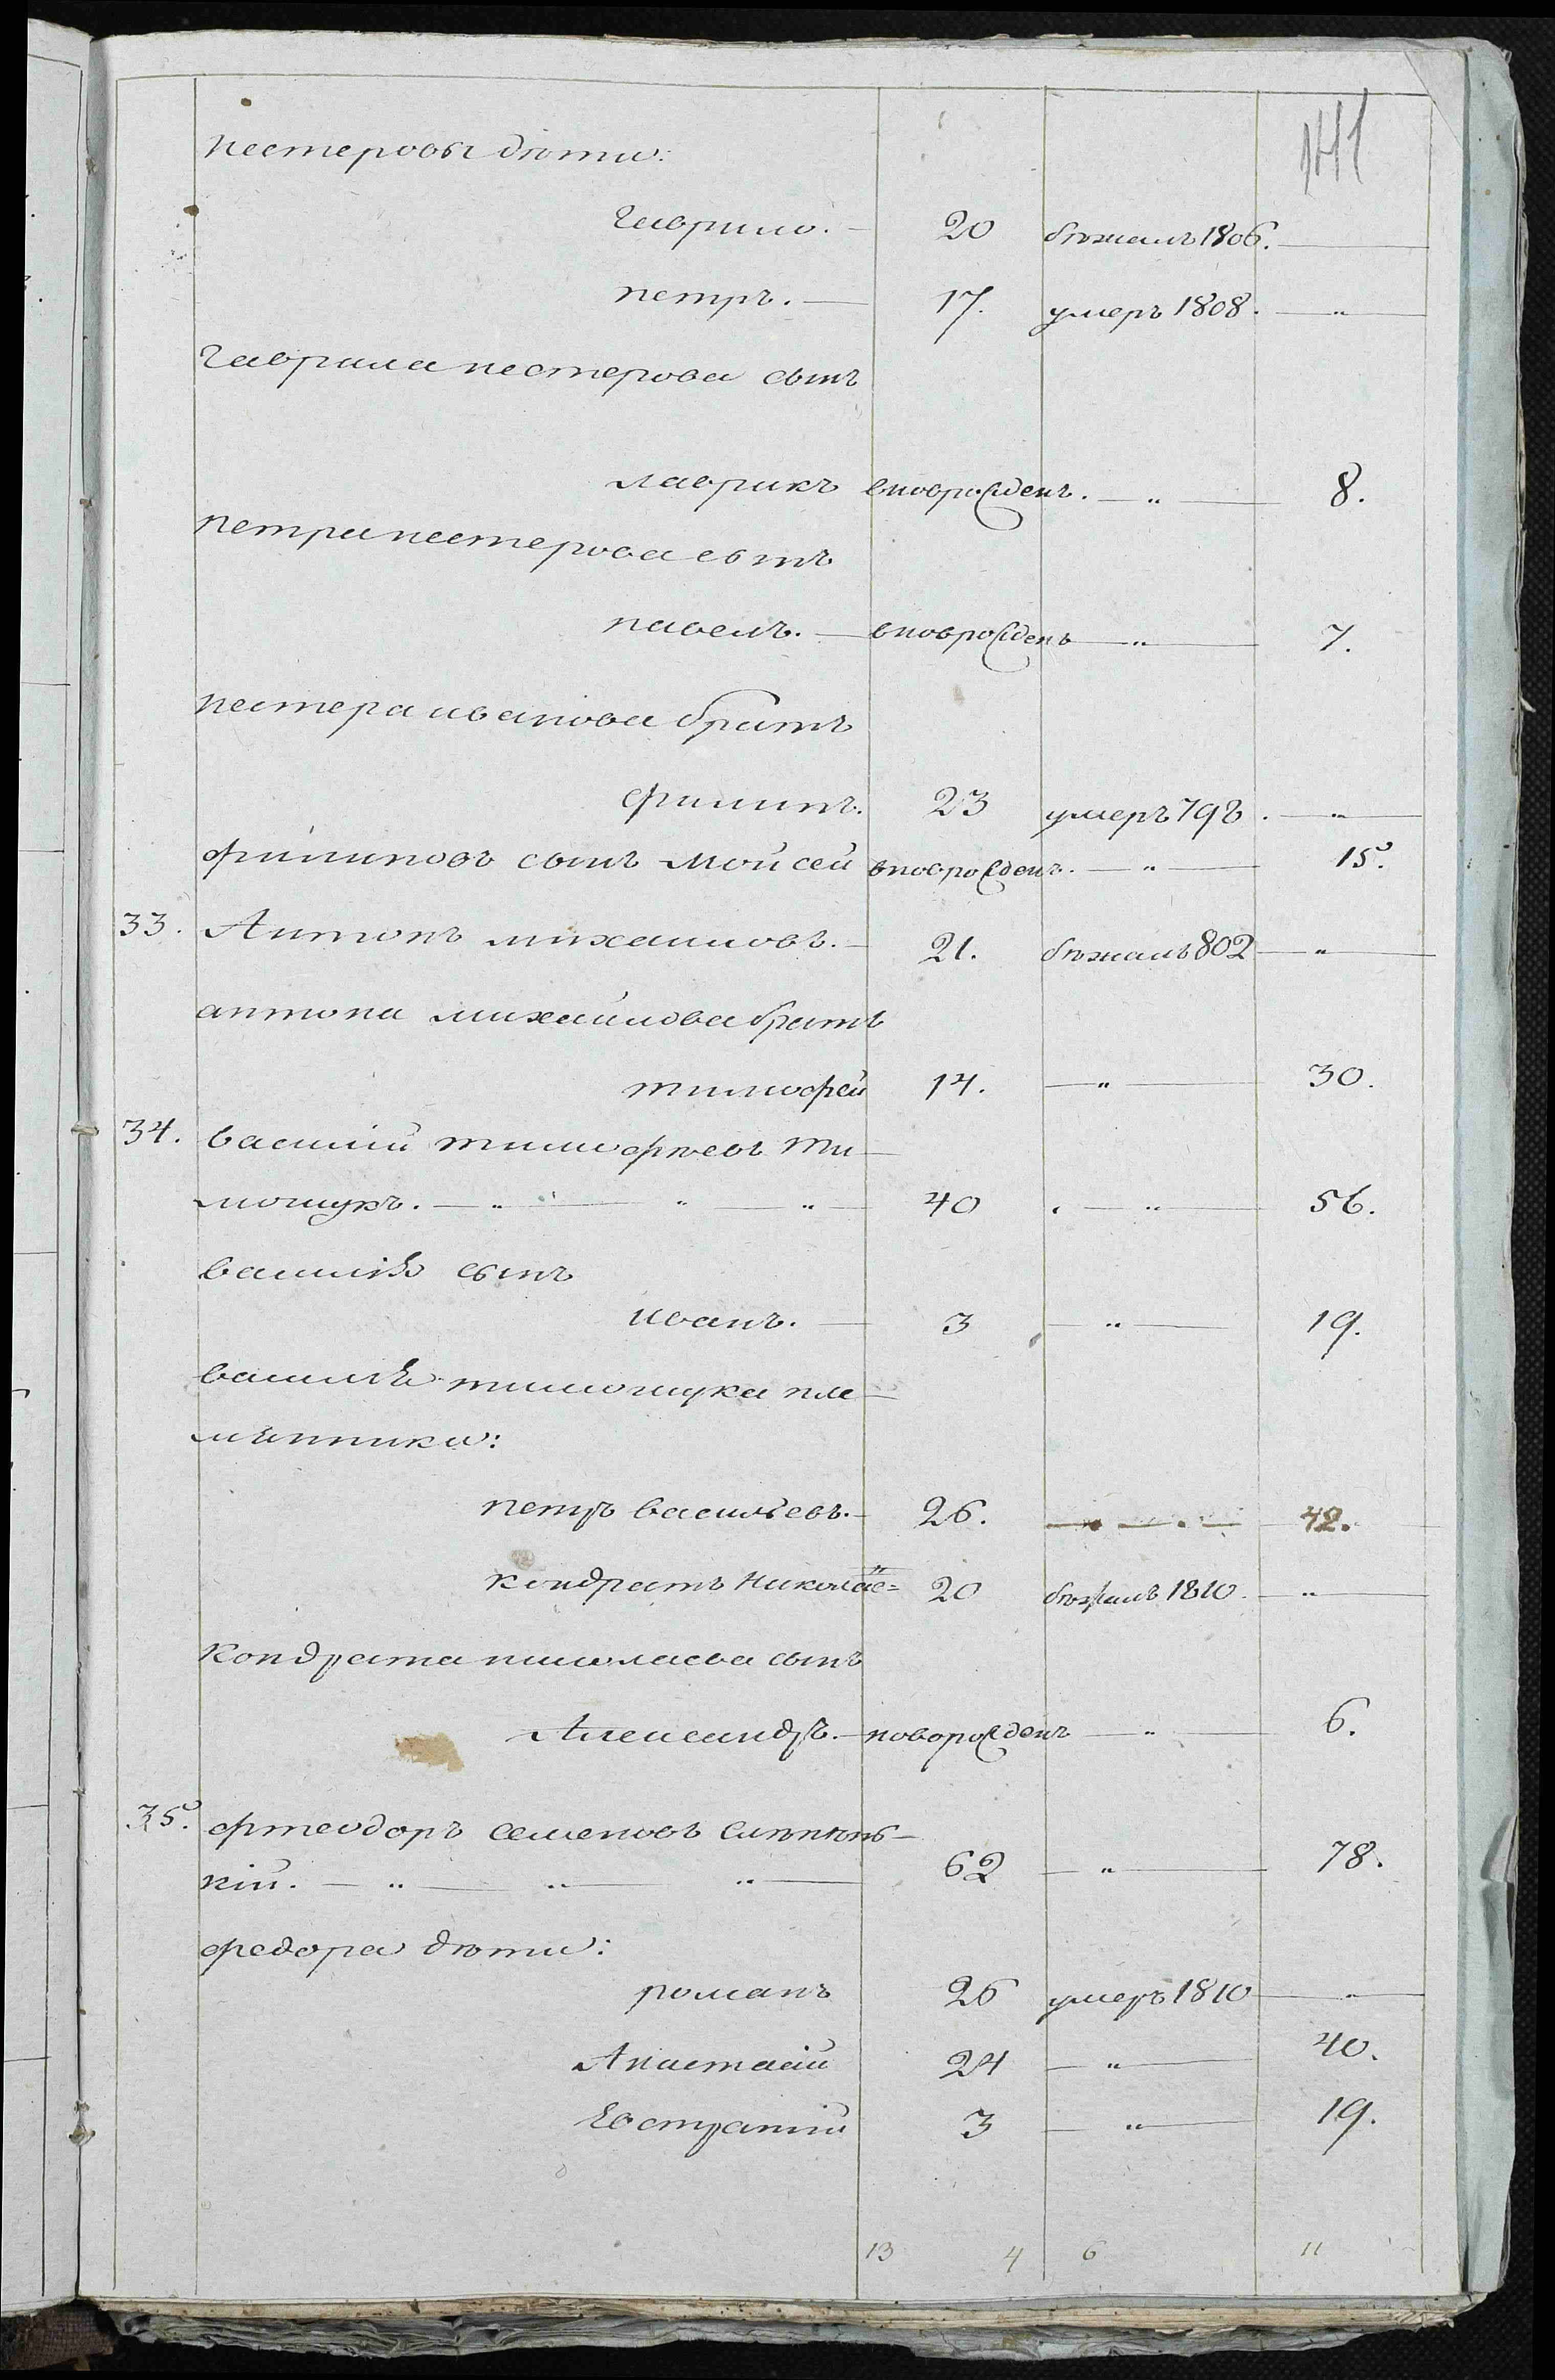 141
нестеровы дѣти:
гаврило. — 20 бѣжалъ 1806. —
петръ. — 17. умеръ 1808. — „ —
гаврила нестерова сынъ
лаврикъ вноврожденъ. — „ — 8.
петра нестерова сынъ
павелъ. — вноврожденъ — „ — 7.
нестера иванова братъ
филипъ. 23 умеръ 798. — „ —
филиповъ сынъ Мойсей вноврожденъ. — „ — 15.
33. Антонъ михаиловъ. — 21. бѣжалъ 802 — „ —
антона михайлова братъ
тимофей 14. — „ — 30.
34. василій тимофѣевъ Ти-
мощукъ. — „ — „ — „ — 40 — „ — 56.
василія сынъ
иванъ. — 3 — „ — 19.
василія тимощука пле-
мянники:
петръ васильевъ. — 26. — „ — 42.
кондратъ николае= 20 бѣжалъ 1810. — „ —
кондрата николаева сынъ
Александръ. — новорожденъ — „ — 6.
35. фтеодоръ семеновъ
кій. — „ — „ — „ — 62 — „ — 78.
федора дѣти:
романъ 26 умеръ 1810 — „ —
Анастасій 24 — „ — 40.
Евстратій 3 — „ — 19.
13 4 6 11